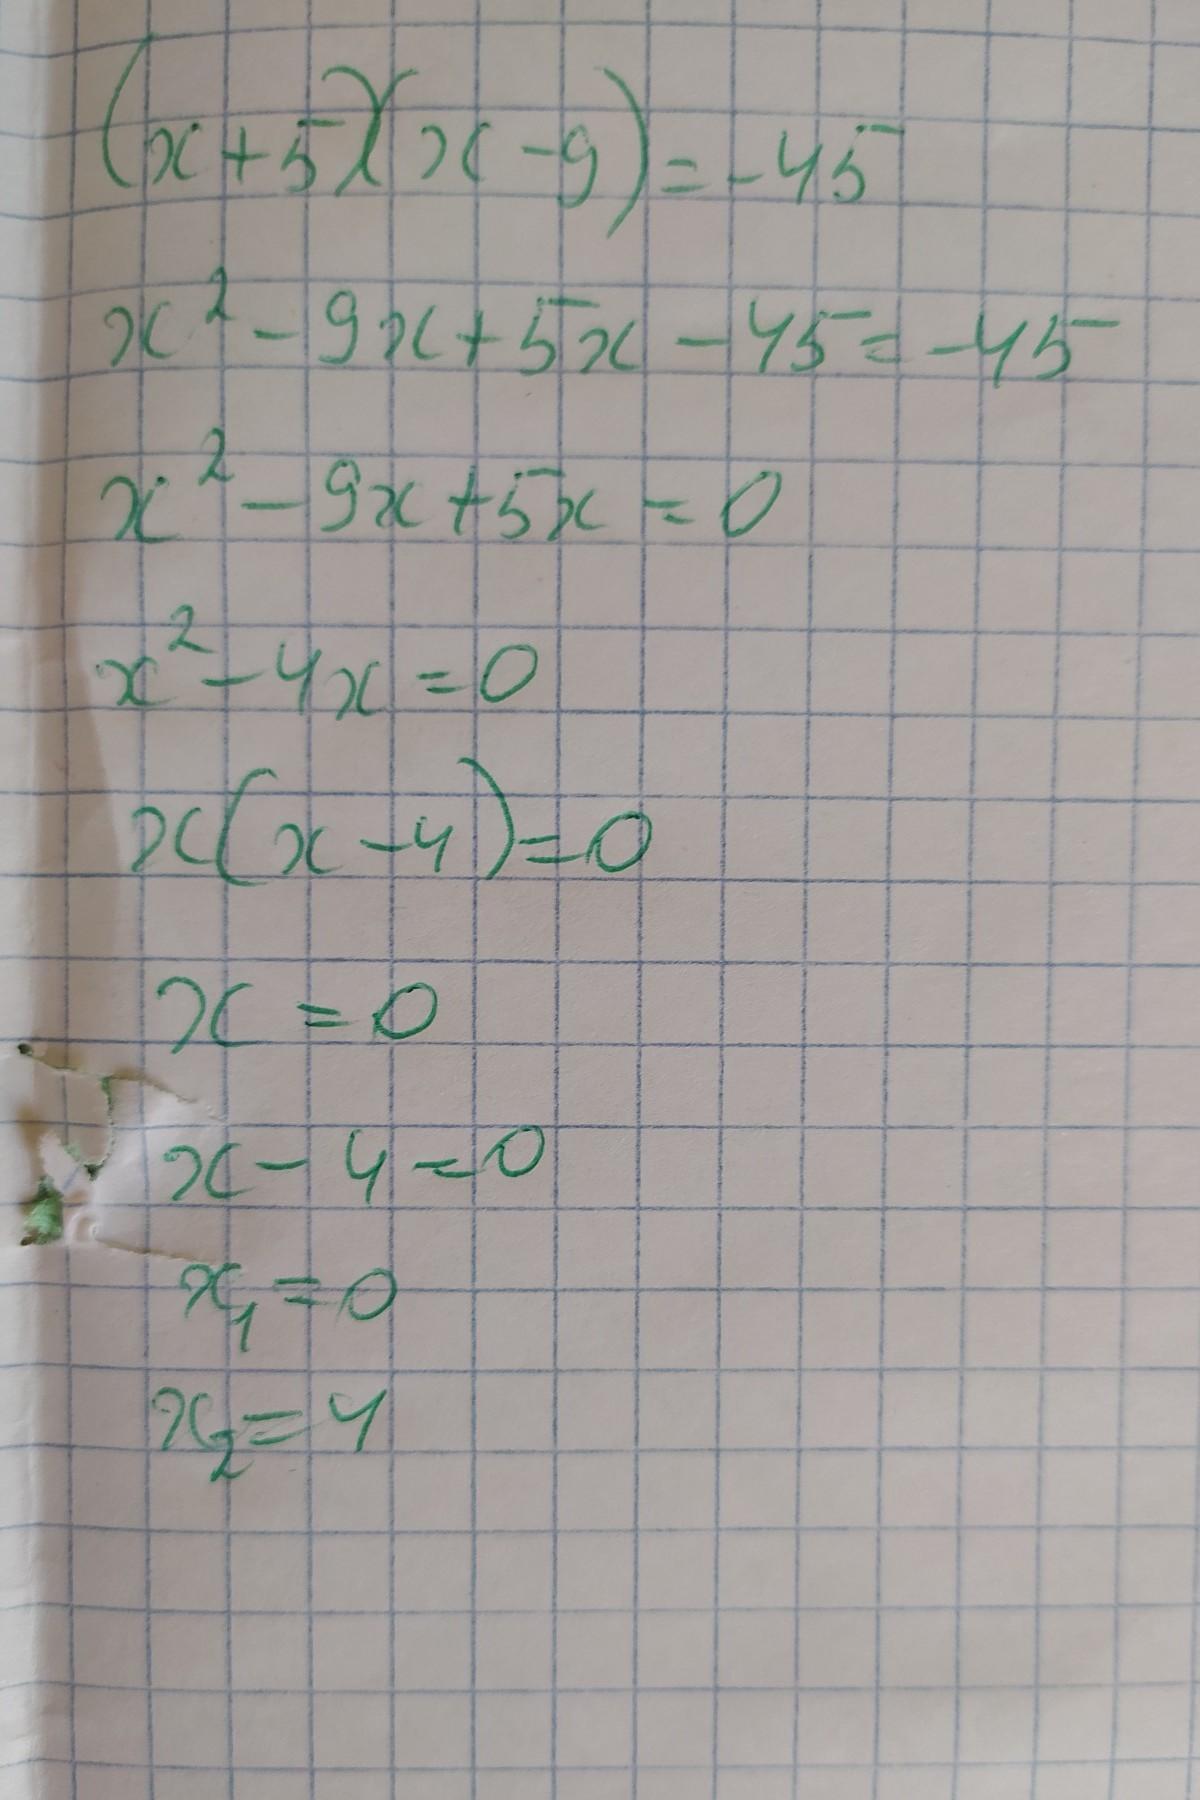 (x+5)(x-9)=-45
x²-9x+5x-45=-45
x²-9x+5x=0
x²-4x=0
x(x-4)=0
x=0
x-4=0
x₁=0
x₂=4